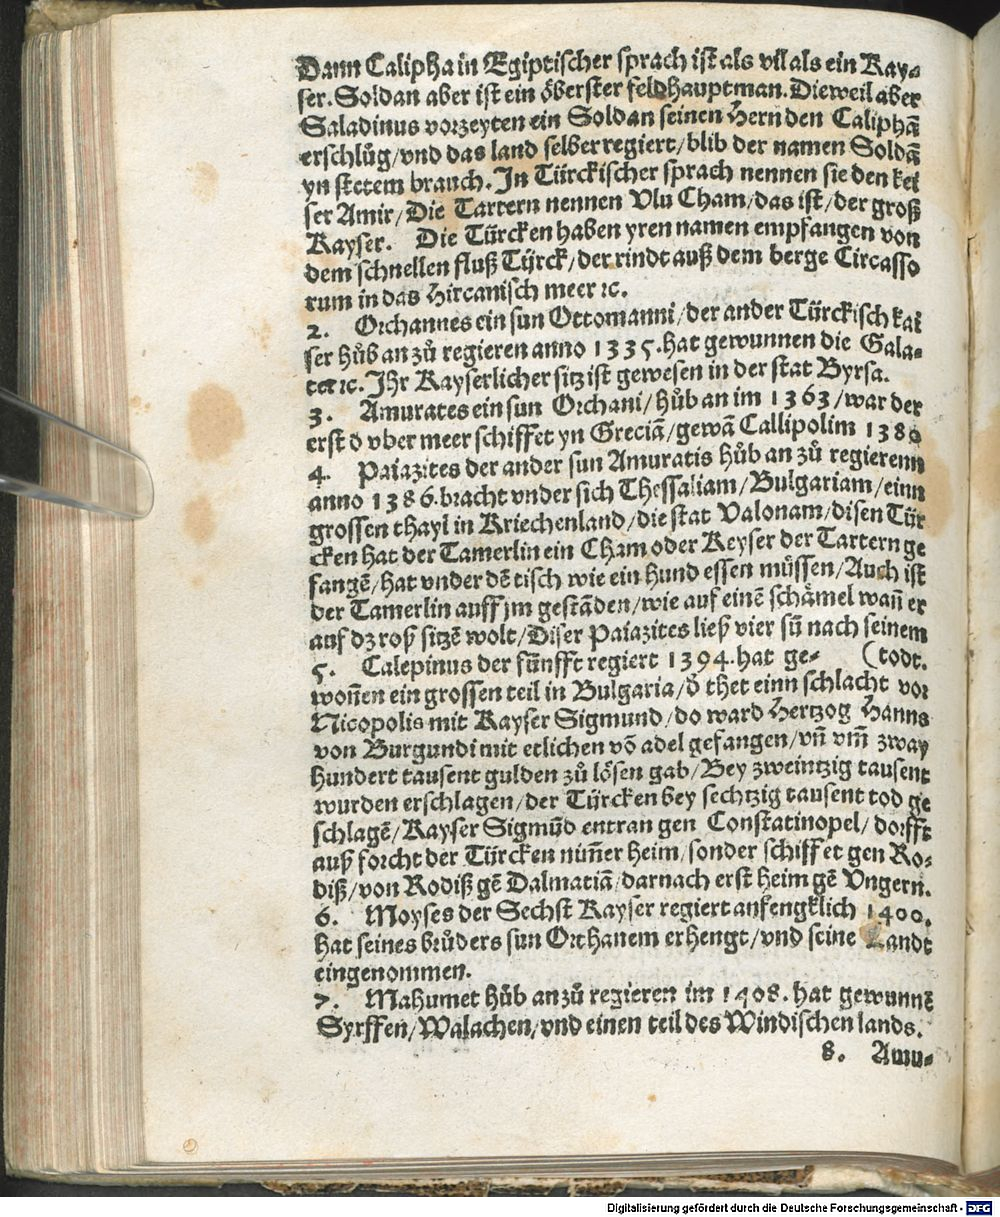 Dann Calipha in Egiptischer sprach ist als vil als ein Kay-
ser. Soldan aber ist ein öberster feldhauptman. Dieweil aber
Saladinus vorzeyten ein Soldan seinen Hern den Caliphã
erschlůg/vnd das land selber regiert/blib der namen Soldã
yn stetem brauch. In Türckischer sprach nennen sie den kei
ser Amir/Die Tartern nennen Vlu Cham/das ist/der groß
Kayser. Die Türcken haben yren namen empfangen von
dem schnellen fluß Türck/der rindt auß dem berge Circasso
rum in das Hircanisch meer ꝛc.
2. Orchannes ein sun Ottomanni/der ander Türckisch kai
ser hůb an zů regieren anno 1335. hat gewunnen die Gala-
ter ꝛc. Ihr Kayserlicher sitz ist gewesen in der stat Byrsa.
3. Amurates ein sun Orchani/hůb an im 1363/war der
erst d̄ vber meer schiffet yn Greciã/gewã Callipolim 1380
4. Paiazites der ander sun Amuratis hůb an zů regierenn
anno 1386. bracht vnder sich Thessaliam/Bulgariam/einn
grossen thayl in Kriechenland/die stat Valonam/disen Tür
cken hat der Tamerlin ein Cham oder Keyser der Tartern ge
fangẽ/hat vnder dẽ tisch wie ein hund essen müssen/Auch ist
der Tamerlin auff jm gestãden/wie auf einẽ schämel wañ er
auf dz roß sitzẽ wolt/Diser Paiazites ließ vier sü̃ nach seinem
5. Calepinus der fünfft regiert 1394. hat ge- (todt.
woñen ein grossen teil in Bulgaria/d̄ thet einn schlacht vor
Nicopolis mit Kayser Sigmund/do ward Hertzog Hanns
von Burgundi mit etlichen võ adel gefangen/vñ vm̃ zway
hundert tausent gulden zů lösen gab/Bey zweintzig tausent
wurden erschlagen/der Türcken bey sechtzig tausent tod ge
schlagẽ/Kayser Sigmũd entran gen Constatinopel/dorfft
auß forcht der Türcken nüm̃er heim/sonder schiffet gen Ro-
diß/von Rodiß gẽ Dalmatiã/darnach erst heim gẽ Vngern.
6. Moyses der Sechst Kayser regiert anfengklich 1400.
hat seines brůders sun Orchanem erhengt/vnd seine Landt
eingenommen.
7. Mahumet hůb an zů regieren im 1408. hat gewunnẽ
Syrffen/Walachen/vnd einen teil des Windischen lands.
8. Amu-
Digitalisierung gefördert durch die Deutsche Forschungsgemeinschaft - DFG